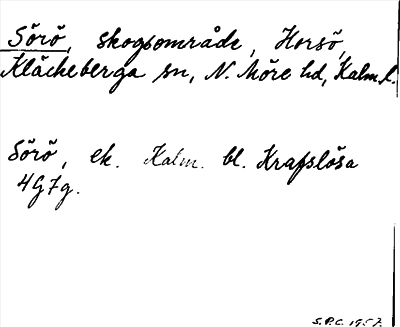 Sörö, skogsområde, Horsö,
Kläckeberga sn, N. Möre hd, Kalm. l.
Sörö, ek. Kalm. bl. Krafslösa
4G7g.
S.P.C. 1957.